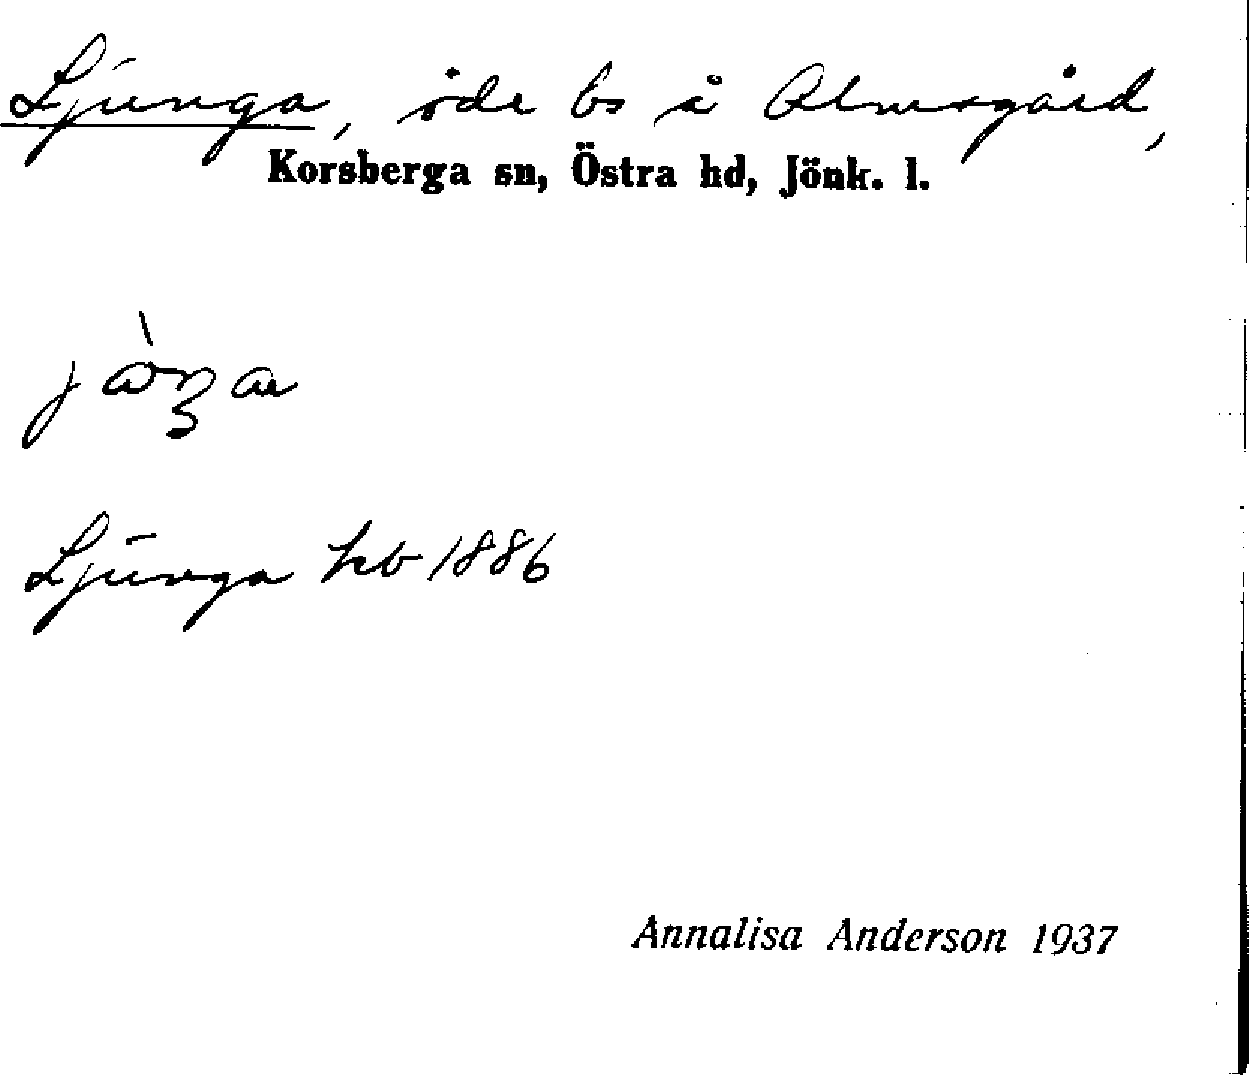 Ljunga, öde bs å Almsgård,
Korsberga sn, Östra hd, Jönk. l.
Ljunga hb 1886
Annalisa Anderson 1937